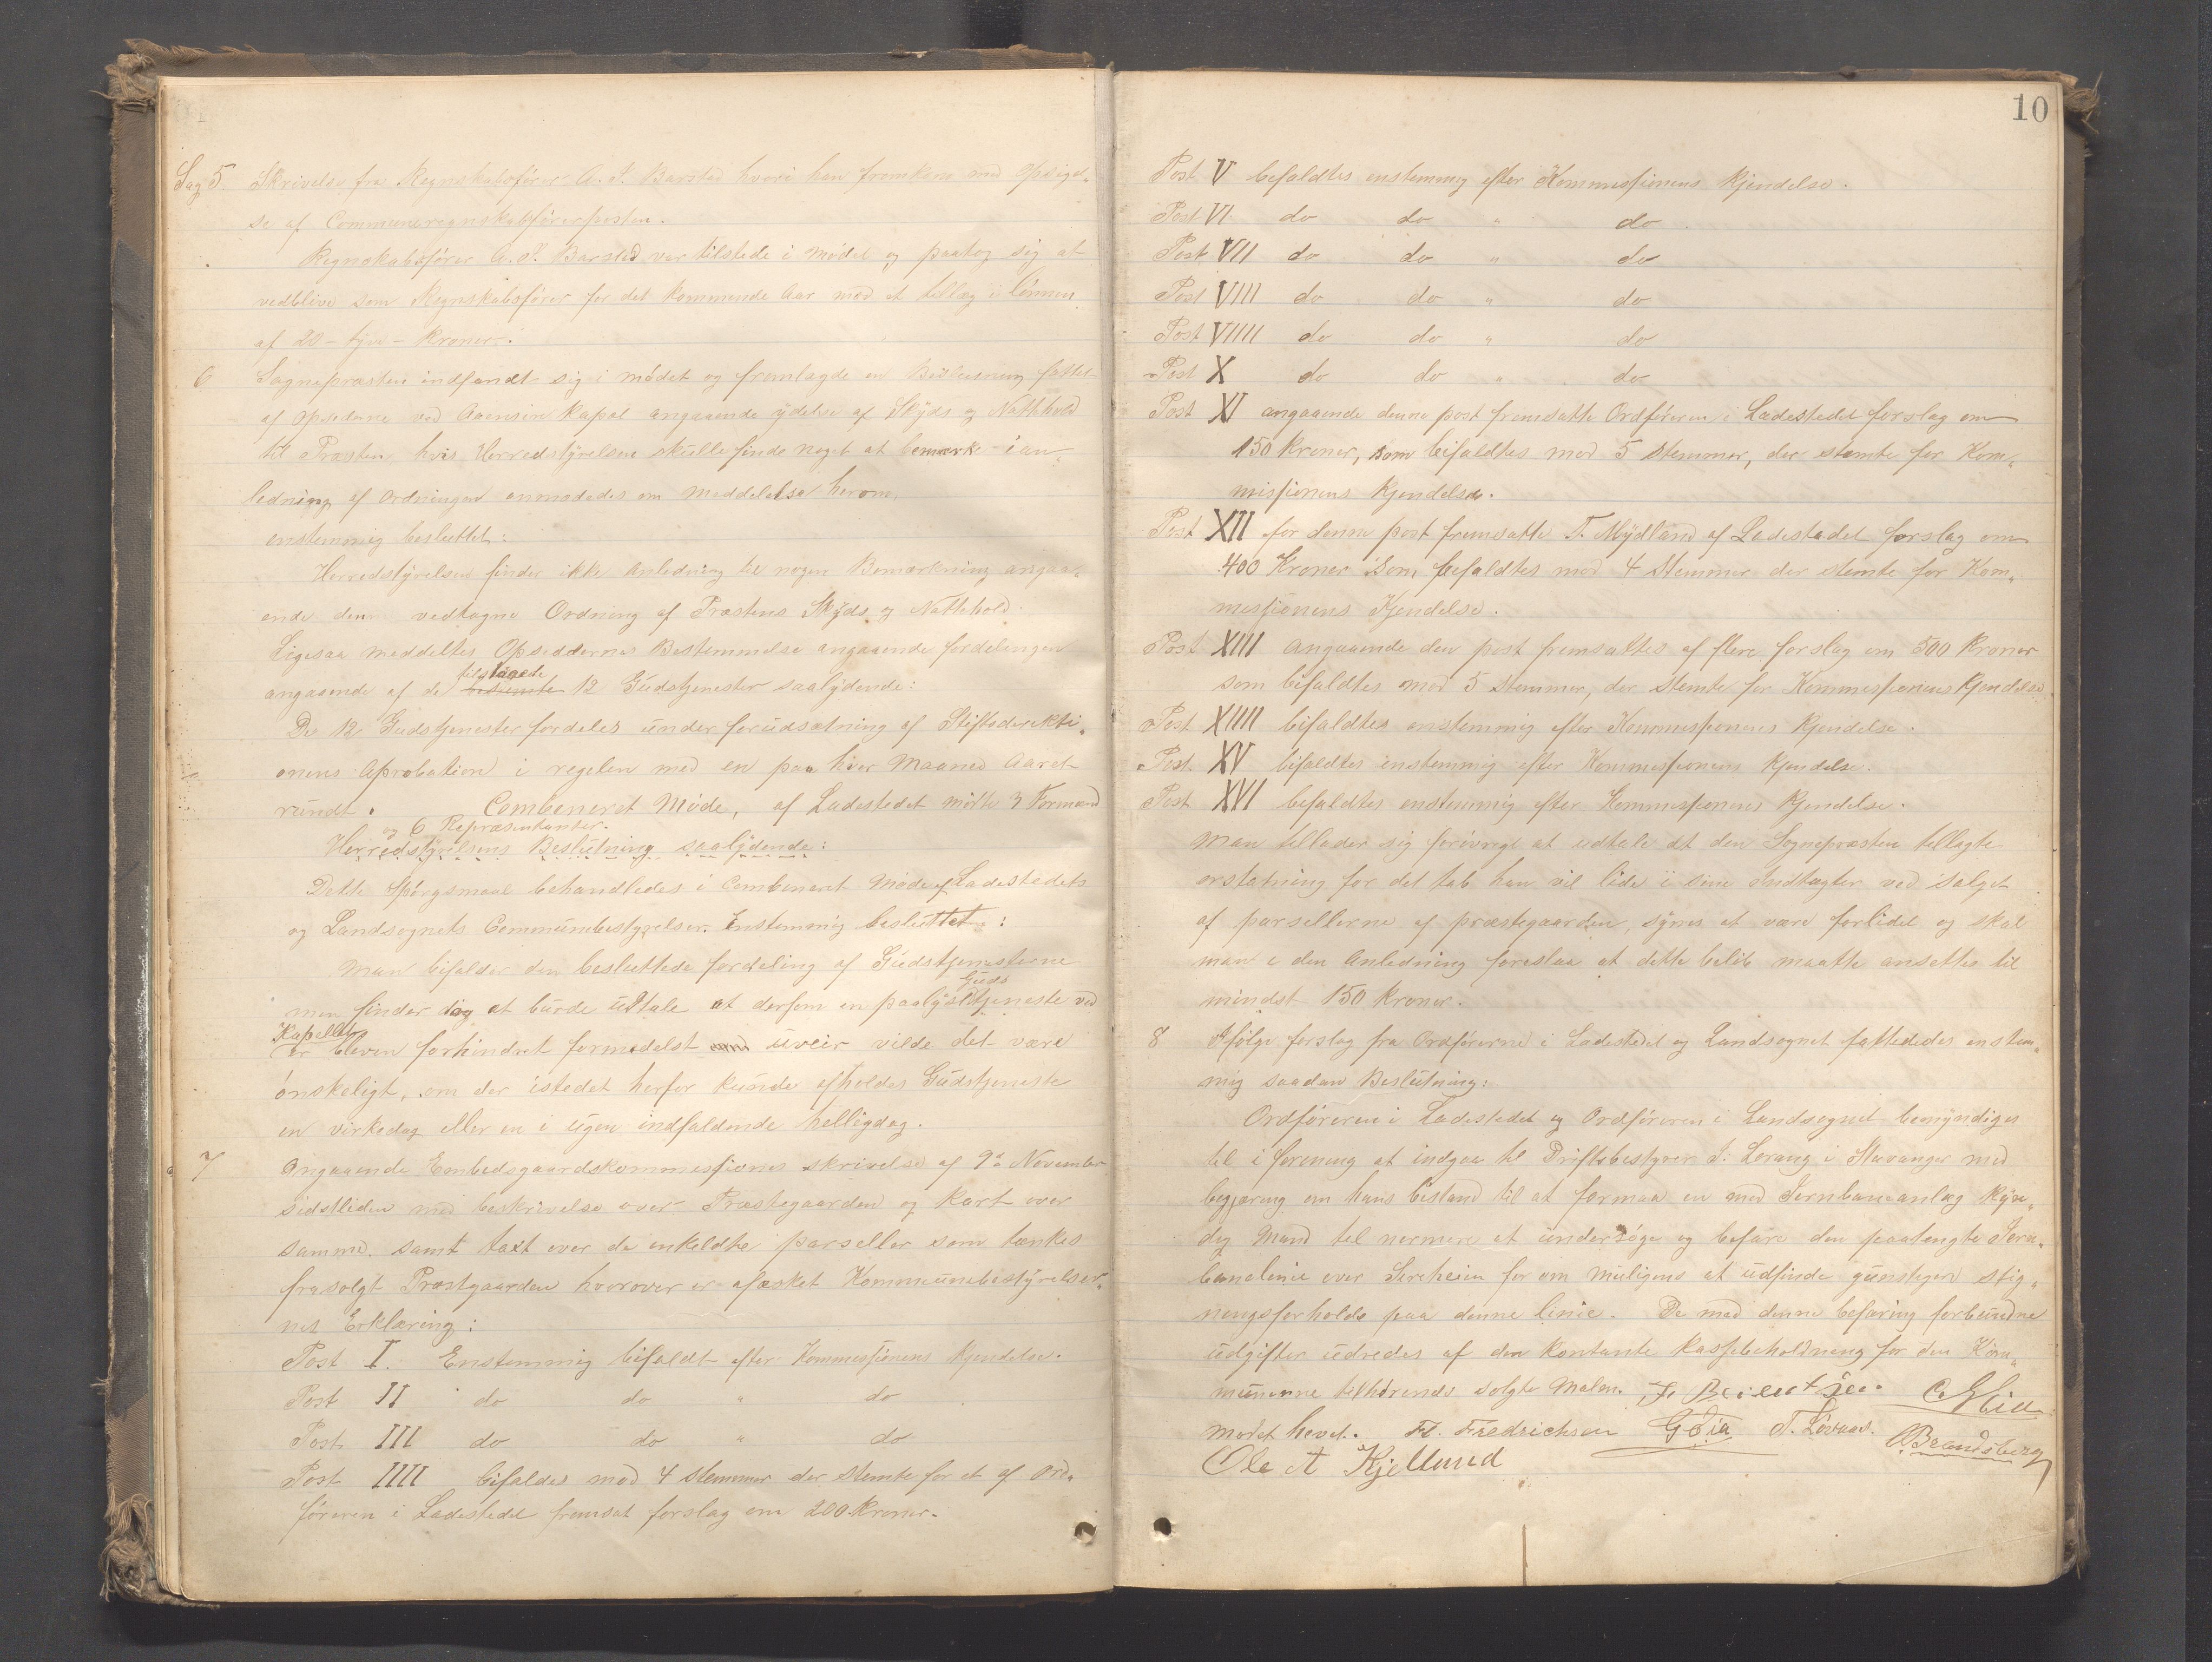 Sag 5. Skrivelse fra Regnskabsfører A. S. Barstad hvori han fremkom med Opsigel-
se af Communeregnskabsførerposten.
Regnskabsfører A. S. Barstad var tilstede i mødet og paatog sig at
vedblive som Regnskabsfører for det kommende Aar mod et tillæg i lønnen
af 20 - tyve - Kroner.
6 Sognepræsten indfandt sig i mødet og fremlagde en Beslutning fattet
af Opsidderne ved Aaensire Kapel angaaende ydelse af Skyds og Nattehold
til Præsten, hvis Herredstyrelsen skulle finde noget at bemærke i an-
ledning af Ordningen anmodedes om meddelelse herom.
enstemmig besluttet:
Herredstyrelsen finder ikke Anledning til nogen Bemærkning angaa-
ende den vedtagne Ordning af Præstens Skyds og Nattehold.
Ligesaa meddeltes Opsiddernes Bestemmelse angaaende fordelingen
tilstaaede
angaaende af de bestemte 12 Gudstjenester saalydende:
De 12 Gudstjenester fordeles under forudsætning af Stiftsdirekti-
onens Aprobation i regelen med en paa hver Maaned Aaret
rundt. Combeneret Møde, af Ladestedet mødte 3 Formænd
og 6 Repræsentanter.
Herredstyrelsens Beslutning saalydende:
Dette Spørgsmaal behandledes i Combeneret Møde af Ladestedets
og Landsognets Communebestyrelser. Enstemmig besluttet:
Man bifalder den besluttede fordeling af Gudstjenesterne
Guds
men finder dog at burde udtale at dersom en paalyst tjeneste ved
Kapellet
er bleven forhindret formedelst uveir vilde det være
ønskeligt, om der istedet herfor kunde afholdes Gudstjeneste
en virkedag eller en i ugen indfaldende helligdag.
7 Angaaende Embedsgaardskommissionens skrivelse af 9de November
sidstleden med beskrivelse over Præstegaarden og Kart over
samme. samt taxt over de enkeldte parseller som tænkes
frasolgt Præstgaarden hvorover er afæsket Kommunebestyrelser-
nes Erklæring:
Post I. Enstemmig bifaldt efter Kommissionens Kjendelse.
Post II do do " do
Post III do do " do
Post IIII bifaldes mod 4 stemmer der stemte for et af Ord-
føreren i Ladestedet fremsat forslag om 200 Kroner.
10
Post V befaldtes enstemmig efter Kommissionens Kjendelse.
Post VI do do " do
Post VII do do " do
Post VIII do do " do
Post VIIII do do " do
Post X do do " do
Post XI angaaende denne post fremsatte Ordføreren i Ladestedet forslag om
150 Kroner, som bifaldtes mod 5 Stemmer, der stemte for Kom-
missionens Kjendelse.
Post XII for denne post fremsatte T. Mydland af Ladestedet forslag om
400 Kroner som befaldtes mod 4 Stemmer der stemte for Kom-
missionens Kjendelse.
Post XIII angaaende den post fremsattes af flere forslag om 500 Kroner
som bifaldtes mod 5 stemmer, der stemte for Kommissionens Kjendelse
Post XIIII bifaldtes enstemmig efter Kommissionens Kjendelse.
Post XV bifaldtes enstemmig efter Kommissionens Kjendelse.
Post XVI befaldtes enstemmig efter Kommissionens Kjendelse.
Man tillader sig forøvrigt at udtale at den Sognepræsten tillagte
erstatning for det tab han vil lide i sine Indtægter ved salget
af parsellerne af præstegaarden, synes at være forlidet og skal
man i den Anledning foreslaa at dette beløb maatte ansettes til
mindst 150 Kroner.
8 Ifølge forslag fra Ordførerne i Ladestedet og Landsognet fattededes enstem-
mig saadan Beslutning:
Ordføreren i Ladestedet og Ordføreren i Landsognet bemyndiges
til i forening at indgaa til Driftsbestyrer I. Lorang i Stavanger med
begjæring om hans bistand til at formaa en med Jernbaneanlæg kyn-
dig Mand til nermere at undersøge og befare den paatengte Jern-
banelinie over Sireheien for om muligens at udfinde gunstigere stig-
nengsforholde paa denne linie. De med denne befaring forbundne
udgifter udredes af den kontante Kassebeholdning for den Kom-
munerne telhørende solgte Malm.
mødet hevet. Fr. Fredrichsen T. Løvaas.
Ole A Kjellund